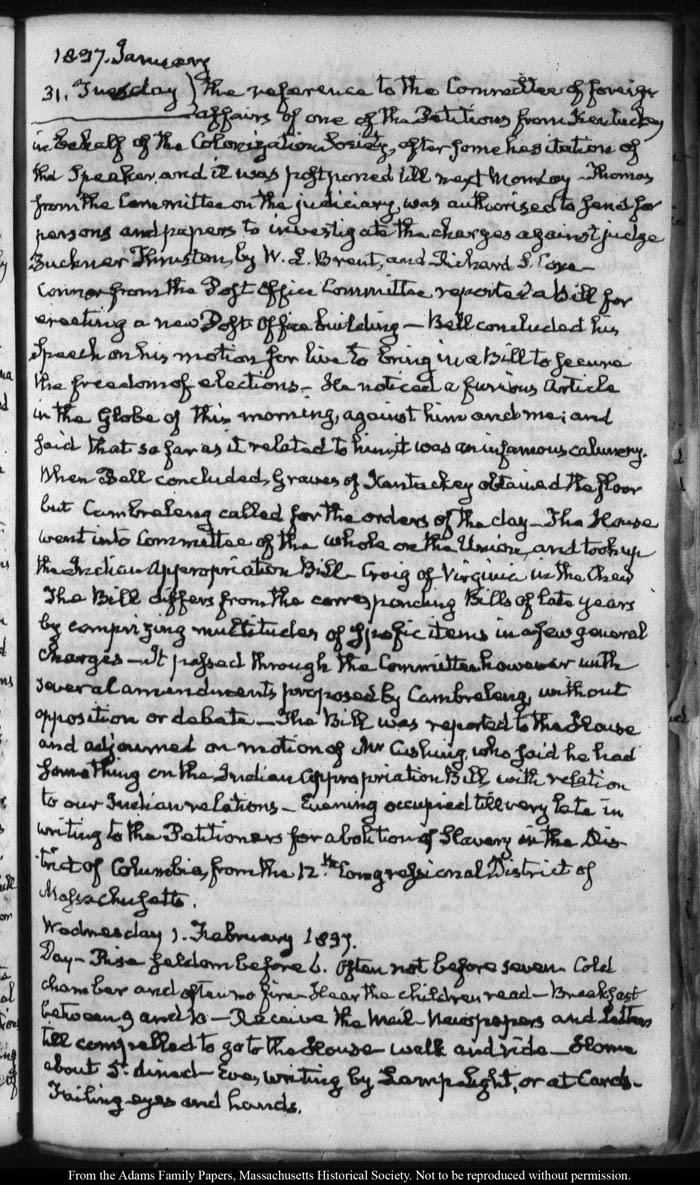 1837. January
31. Tuesday) the reference to the Committee of foreign
affairs of one of the Petitions from Kentucky
in behalf of the Colonization Society, after some hesitation of
the Speaker, and it was postponed till next Monday – Thomas
from the Committee on the judiciary, was authorised to send for
persons and papers to investigate the charges against judge
Buckner Thruston, by W. L. Brent, and Richard S. Coxe –
Connor from the Post Office Committee reported a Bill for
erecting a new Post Office building – Bell concluded his
Speech on his motion for live to bring in a Bill to secure
the freedom of elections – He noticed a furious Article
in the Globe of this morning, against him and me; and
said that so far as it related to him, it was an infamous calumny.
When Bell concluded, Graves of Kentuckey obtained the floor
but Cambreleng called for the orders of the day – The House
went into Committee of the whole on the Union, and took up
the Indian Appropriation Bill – Craig of Virginia in the Chair
The Bill differs from the corresponding Bills of late years
by comprizing multitudes of specific items in a few general
charges – It passed through the Committee however with
several amendments proposed by Cambreleng, without
opposition or debate – The Bill was reported to the House
and adjourned on motion of Mr Cushing, who said he had
something on the Indian Appropriation Bill with relation
to our Indian relations – Evening occupied till very late in
writing to the Petitioners for abolition of Slavery in the Dis-
-trict of Columbia, from the 12.th Congressional District of
Massachusetts.
Wednesday 1. February 1837.
Day – Rise seldom before 6. often not before seven. Cold
chamber and often no fire – Hear the children read – Breakfast
between 9 and 10 – Receive the Mail – Newspapers and Letters
till compelled to go to the House – walk and ride – Home
about 5. dined – Eve, writing by Lamp-light, or at Cards –
Failing eyes and hands.
From the Adams Family Papers, Massachusetts Historical Society. Not to be reproduced without permission.